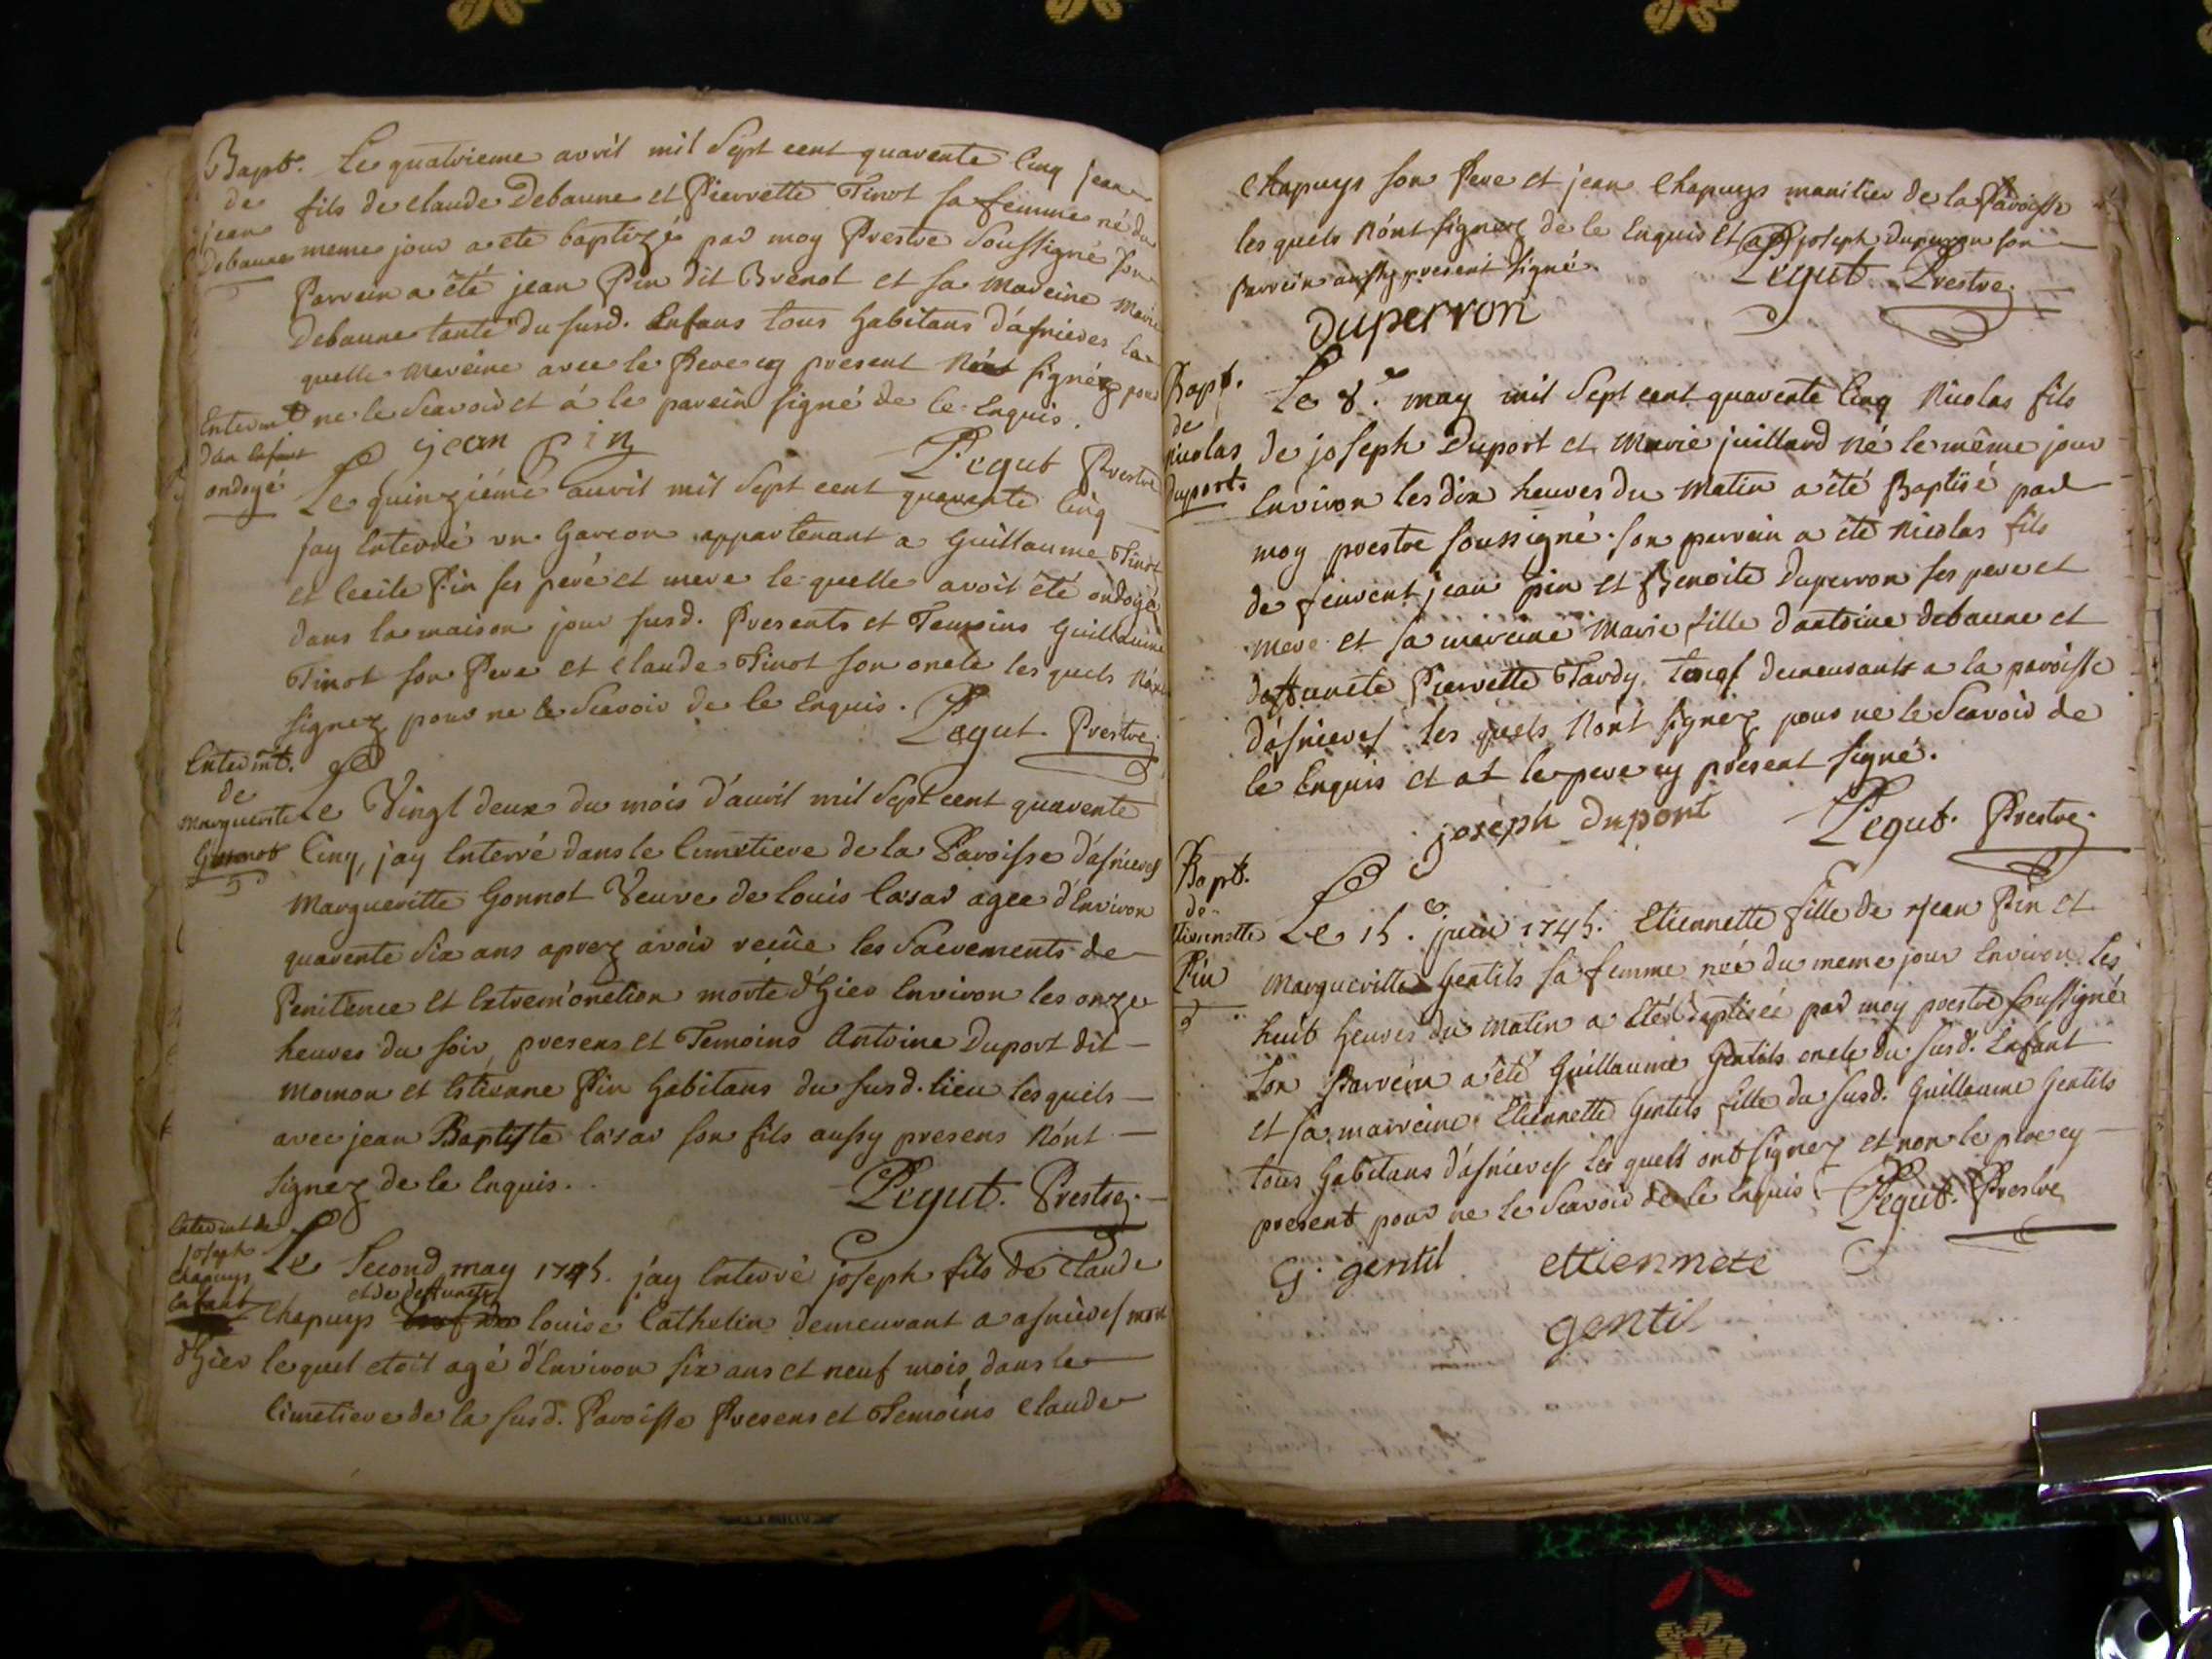 Bapt.
de
jean
Debaune
Le quatrieme avril mil Sept cent quarente Cinq jean
fils de claude Debaune et Pierrette Tinot sa femme né du
meme jour a ete baptizé par moy Prestre Soussigné son
Parrein a été jean Pin dit Brenot et sa Mareine Marie
Debaune tante du susd. Enfans tous habitans d'asnieres la
quelle Mareine avec le Pere cy present N'ont signéz pour
ne le Scavoir et á le parein signé de ce Enquis.
jean pin
Pegut Prestre
Enterm.t
d'un Enfant
ondoyé
Le quinziéme auril mil Sept cent quarente Cinq
jay Enterré un Garcon appartenant a Guillaume Tinot
et Cecile Pin ses peré et mere le quelle avoit été ondoyé
dans la maison jour susd. Presents et Temoins Guillaume
Tinot son Pere et Claude Tinot son oncle les quels N'ont
signez pour ne le Scavoir de ce Enquis.
Pegut. Prestre.
Enterm̃t.
de
Marguerite
Gonnot
Le Vingt deux du mois d'auril mil Sept cent quarente
Cinq, jay Enterré dans le Cimetiere de la Paroisse d'asnieres
Margueritte Gonnot Veuve de Louis Casar agee d'Environ
quarente Six ans aprez avoir reçüe les Sacrements de
Penitence et Extrem'onction morte d'hier Environ les onze
heures du soir, presens et Temoins Antoine Duport dit
Momon et Estienne Pin habitans du susd. lieu lesquels
avec jean Baptiste Casar son fils aussy presens N'ont
signez de ce Enquis.
Pegut. Prestre.
Enterm̃t de
joseph
Chapuys
Enfant
Le Second may 1745. jay Enterré joseph fils de Claude
et de deffuncte
Chapuys louise Cathelin demeurant a asnieres mort
d'hier lequel etoit agé d'Environ six ans et neuf mois, dans le
Cimetiere de la susd. Paroisse Presens et Temoins Claude
Chapuys son Pere et jean Chapuys manilier de la Paroisse
les quels N'ont signez de ce Enquis Et joseph Duperron son
Parrein aussy present signé.
Pegut. Prestre.
Duperron
Bapt.
de
Nicolas
Duport
Le 8.e may mil Sept cent quarente Cinq Nicolas fils
de joseph Duport et Marie juillard Né le même jour
Environ les dix heures du Matin a été Baptisé par
moy prestre soussigné. son parrein a été Nicolas fils
de feuvent jean pin et Benoite Duperron ses pere et
Mere et sa mareine Marie fille dantoine debaune et
deffuncte Pierrette Tardy, tous demeurants a la paroisse
d'asnieres les quels N'ont signez pour ne le Scavoir de
ce Enquis et at le pere cy present signé.
joseph duport
Pegut. Prestre.
Bapt.
de
Etiennette
Pin
Le 15.e juin 1745. Etiennette fille de jean Pin et
Margueritte Gentils sa femme née du meme jour Environ les
huit heures du Matin a Eté Baptisée par moy prestre soussigné
son Parrein a été Guillaume Gentils oncle du susd. Enfant
et sa marreine Etiennette Gentils fille du susd. Guillaume Gentils
tous habitans d'asnieres les quels ont signez et non le pere cy
present pour ne le Scavoir de ce Enquis
Pegut. Prestre
G. gentil
ettiennete
gentil